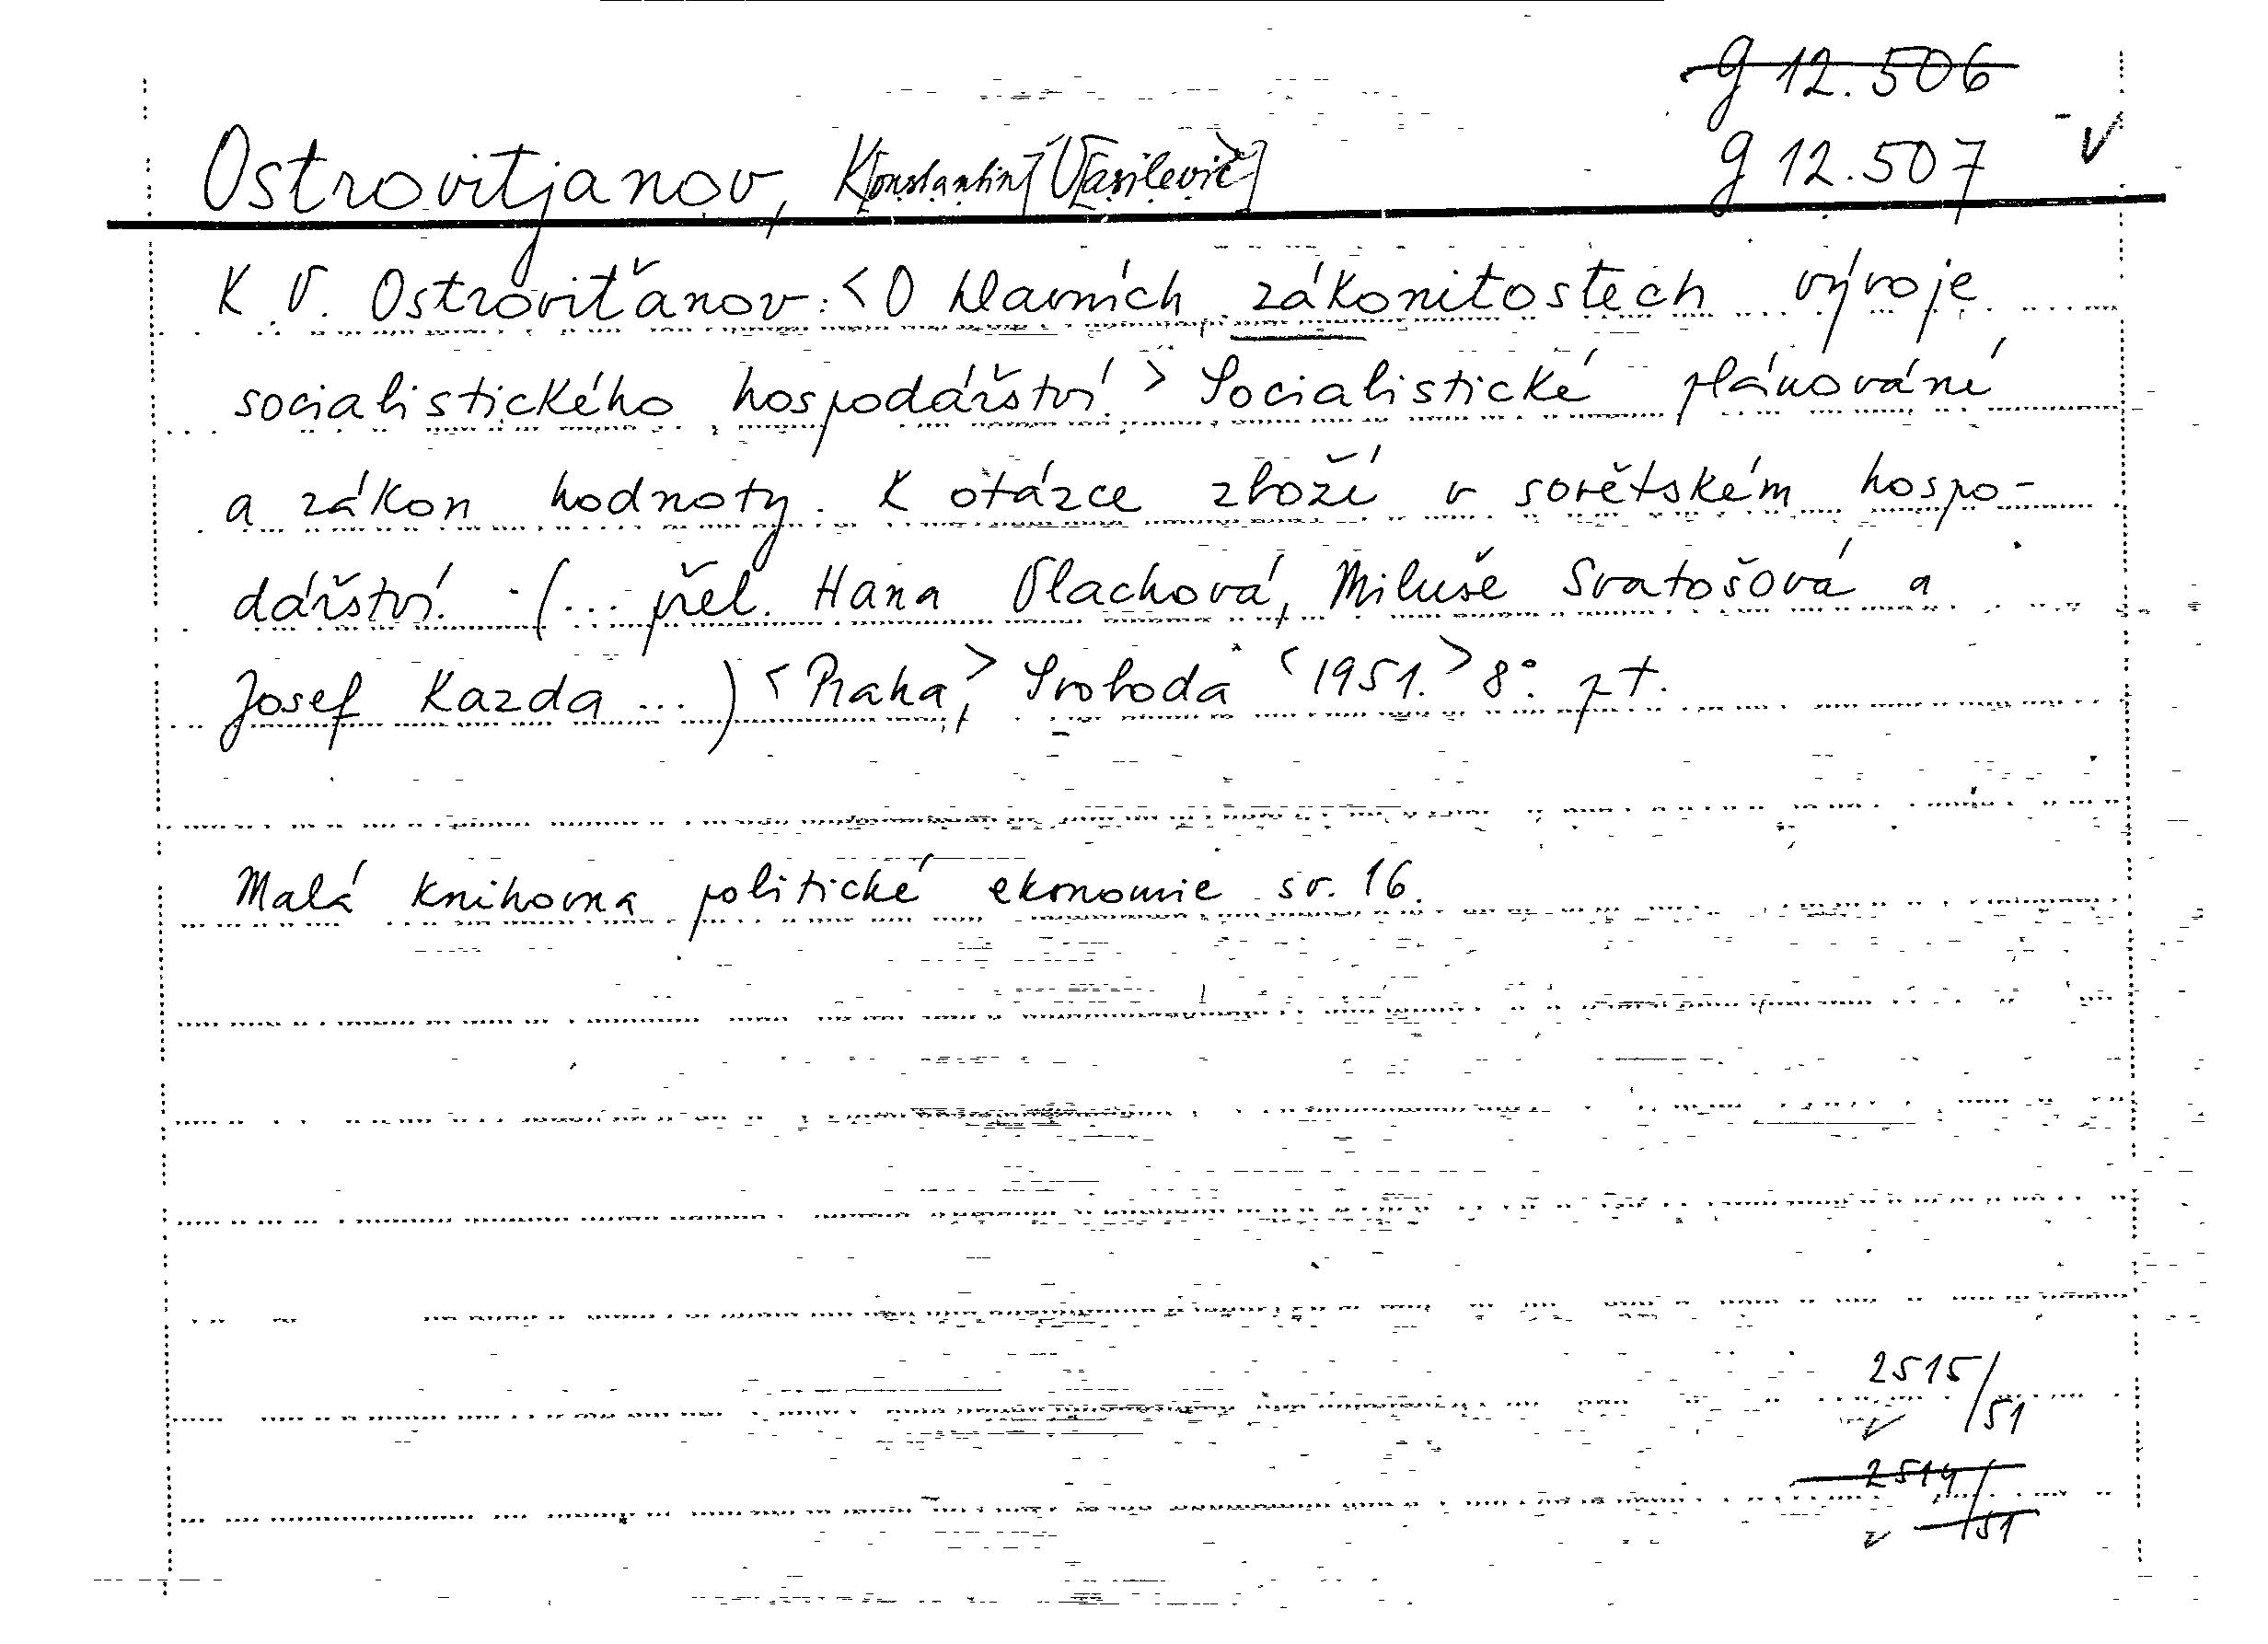 g 12.506
Ostrovitjanov, K[onstantin] V[asilevič] g 12.507
K. V. Ostroviťanov: <O hlavních zákonitostech vývoje
socialistického hospodářství.> Socialistické plánování
a zákon hodnoty. K otázce zboží v sovětském hospo-
dářství. - (... přel. Hana Vlachová, Miluše Svatošová a
Josef Kazda ...) <Praha,> Svoboda <1951.> 8°. pt.
Malá knihovna politické ekonomie sv. 16.
2515/51
2514/51